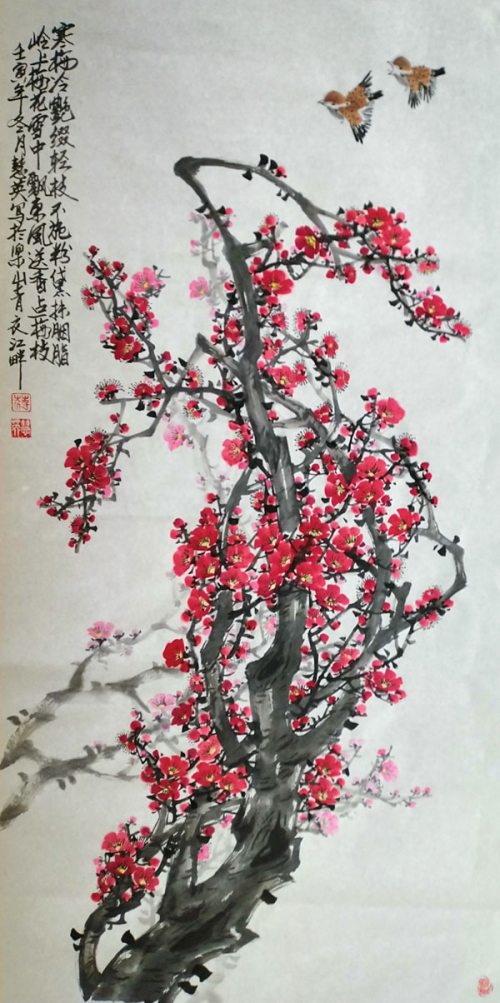 寒梅冷艷缀轻枝不施粉黛抹胭脂
岭上梅花雪中飘东风送香占梅枝
壬寅年冬月慧英写于梁山青衣江畔